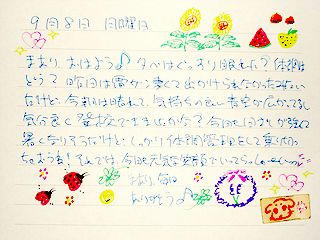 9月8日 日曜日
まあり、おはよう♪ 夕べはぐっすり眠れた? 体調は
どう? 昨日は雨から寒くて出かけられなかった
だけど、今朝は晴れて、気持ちの良い青空が広がってるし
気分良く登校できますね 今日も日ざしが強くて
暑くなりそうだけど、しっかり体調管理をして乗り切っ
ちゃおうね! では、今日も元気な笑顔でいってらっしゃーい
まあり、毎日
ありがとう♪